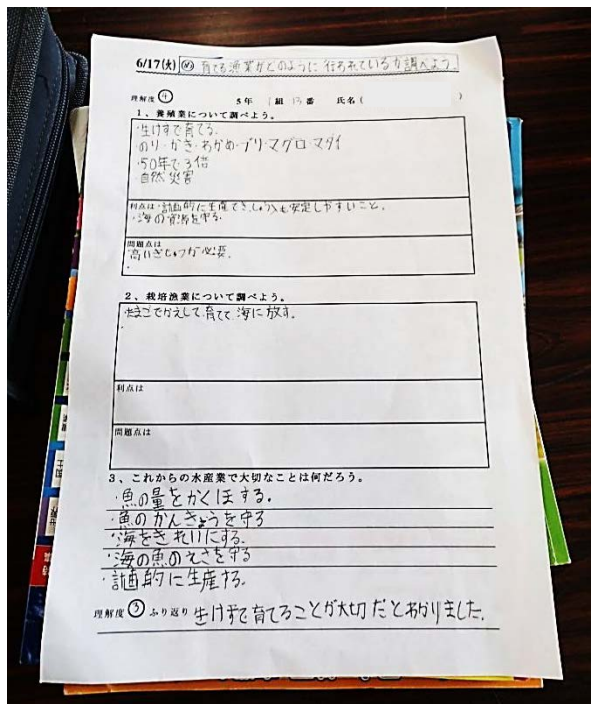 6/17(火) め 育てる漁業がどのように行われているか調べよう。
理解度 4 5年 1組 13番 氏名( )
1、養殖業について調べよう。
・生けすで育てる。
のり・かき・わかめ・ブリ・マグロ・マダイ
・50年で3倍
自然災害
利点は・計画的に生産でき、しゅう入も安定しやすいこと。
・海の資源を守る。
問題点は
高いぎじゅつが必要。
2、栽培漁業について調べよう。
たまごでかえして、育てて、海に放す。
利点は
問題点は
3、これからの水産業で大切なことは何だろう。
・魚の量をかくほする。
・魚のかんきょうを守る
・海をきれいにする。
・海の魚のえさを守る
・計画的に生産する。
理解度 3 ふり返り 生けすで育てることが大切だとわかりました。